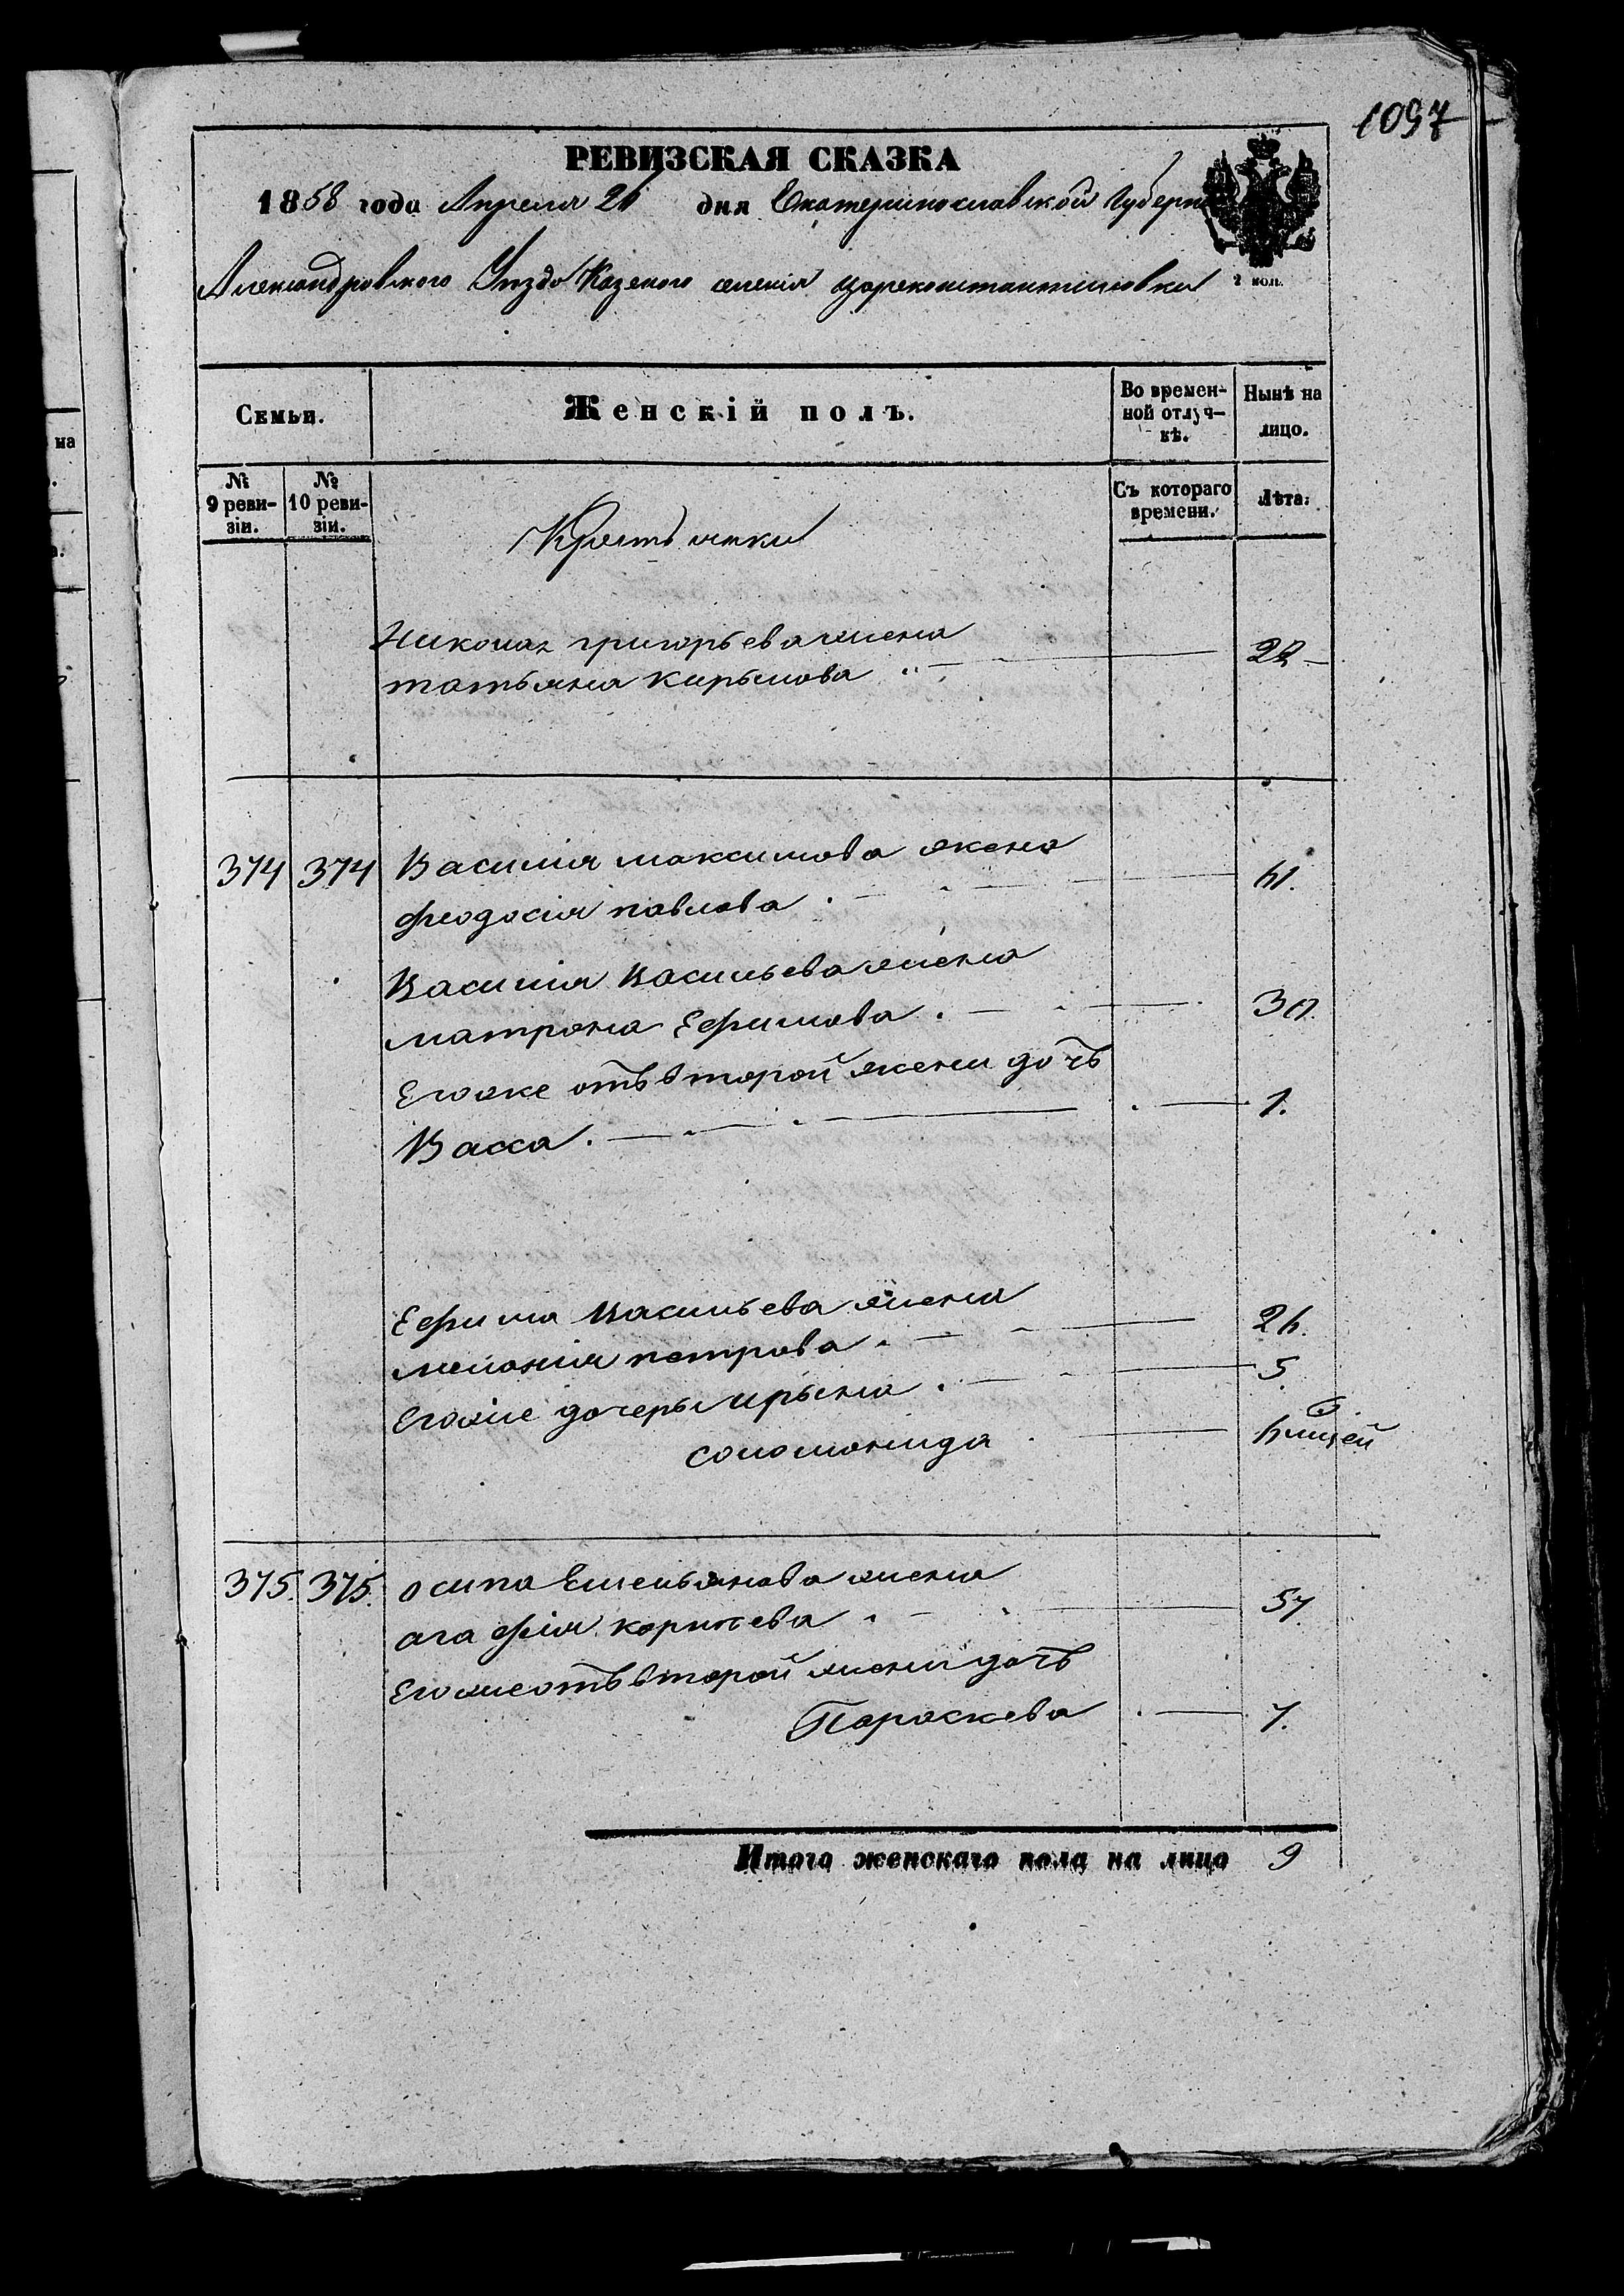 1097
РЕВИЗСКАЯ СКАЗКА
1858 года Апреля 26 дня Екатеринославской Губерн
Александровского Уезда Казеного селения Цареконстантиновки
2 коп.
Семьи.
Женскій полъ.
Во времен-
ной отлуч-
кѣ.
Нынѣ на
лицо.
№
9 реви-
зіи.
№
10 реви-
зіи.
Съ котораго
времени.
Лѣта.
Крестьянки
Николая григорьева жена
татьяна кирылова 22
374 374 Василия максимова жена
феодосия павлова 61.
Василия Васильева жена
матрона Ефимова 30.
Егоже отъ второй жены дочь
Васса 1.
Ефима Васильева жена
мелания петрова 26.
Егоже дочеры Ирына 5
соломонида 6 мцей
375. 375. осипа Емельянова жена
агафия корнеева 57
Егоже отъ второй жены дочь
Параскева 7.
Итого женскаго пола на лицо 9
на